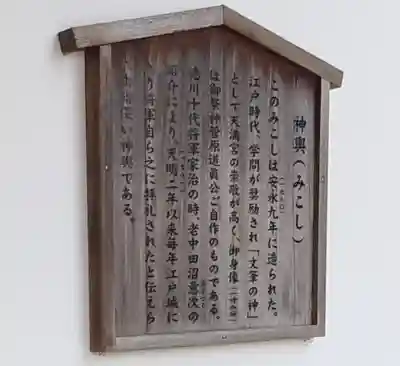 神輿(みこし)
このみこしは安永九年に造られた。
江戸時代、学問が奨励され「文筆の神」
として天満宮の崇敬が高く、御身像
は御祭神菅原道真公ご自作のものである。
徳川十代将軍家治の時、老中田沼意次の
紹介により、天明二年以来毎年江戸城に
り将軍自ら之に拝礼されたと伝えら
い神輿である。